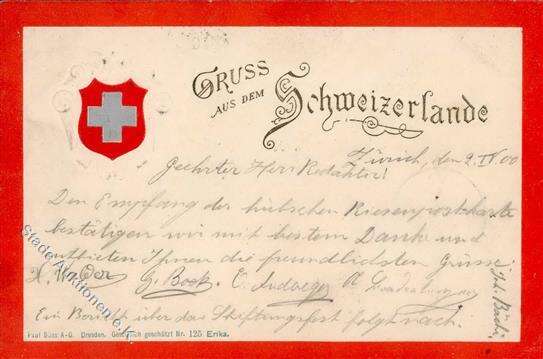 GRUSS
AUS DEM
Schweizerlande
Zürich, den 2. IV 00
Geehrter Herr Redakteur!
Den Empfang der hübschen Riesenpostkarte
bestätigen wir mit bestem Dank und
entbieten Ihnen die freundlichsten Grüsse
G. Bock
Ein Bericht über das Stiftungsfest folgt nach.
Paul Süss A.-G. Dresden. Gesetzlich geschützt Nr. 125 Erika.